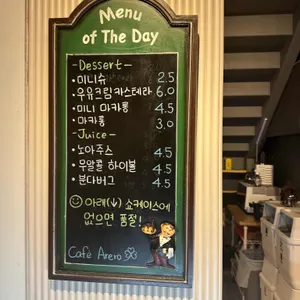 Menu
of The Day
-Dessert-
•미니슈 2.5
•우유크림카스테라 6.0
•미니 마카롱 4.5
•마카롱 3.0
-Juice-
•노아주스 4.5
•무알콜 하이볼 4.5
•분다버그 4.5
☺ 아래(↓) 쇼케이스에
없으면 품절!
Cafe Arero